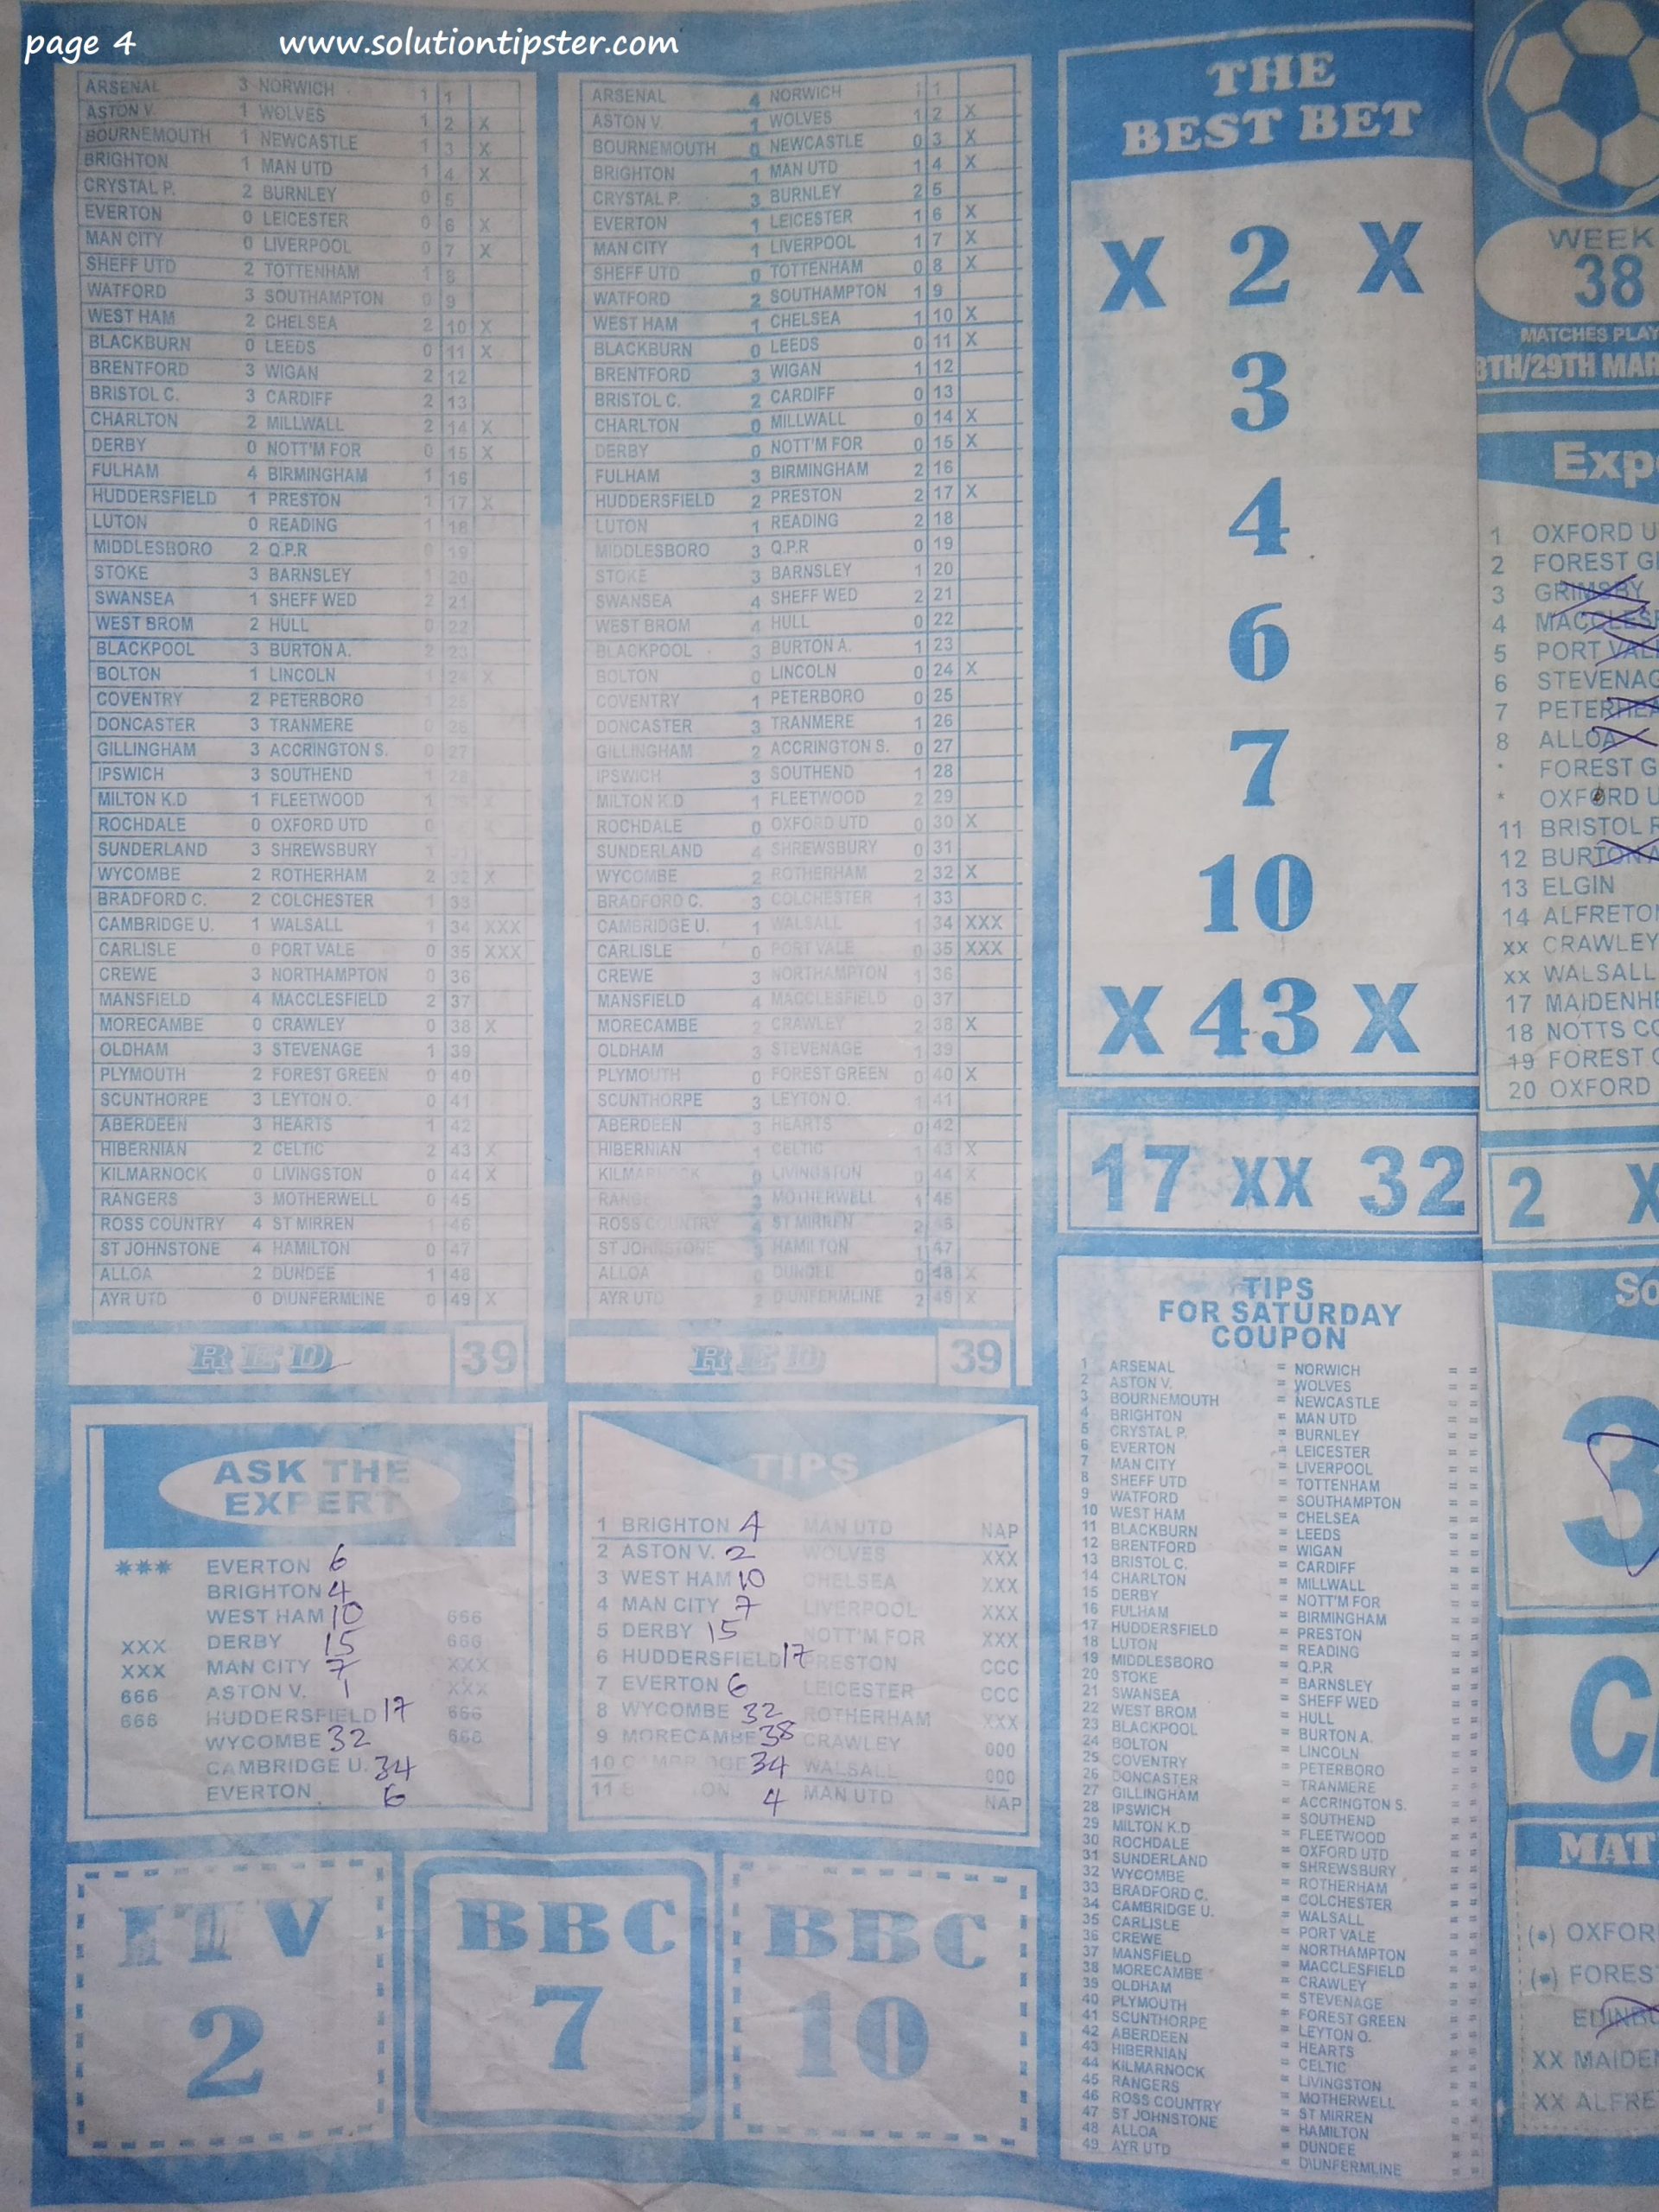 page 4 www.solutiontipster.com
ARSENAL 3 NORWICH 1 1
ASTON V. 1 WOLVES 1 2 X
BOURNEMOUTH 1 NEWCASTLE 1 3 X
BRIGHTON 1 MAN UTD 1 4 X
CRYSTAL P. 2 BURNLEY 0 5
EVERTON 0 LEICESTER 0 6 X
MAN CITY 0 LIVERPOOL 0 7 X
SHEFF UTD 2 TOTTENHAM 1 8
WATFORD 3 SOUTHAMPTON 0 9
WEST HAM 2 CHELSEA 2 10 X
BLACKBURN 0 LEEDS 0 11 X
BRENTFORD 3 WIGAN 2 12
BRISTOL C. 3 CARDIFF 2 13
CHARLTON 2 MILLWALL 2 14 X
DERBY 0 NOTT'M FOR 0 15 X
FULHAM 4 BIRMINGHAM 1 16
HUDDERSFIELD 1 PRESTON 1 17 X
LUTON 0 READING 1 18
MIDDLESBORO 2 Q.P.R 0 19
STOKE 3 BARNSLEY 1 20
SWANSEA 1 SHEFF WED 2 21
WEST BROM 2 HULL 0 22
BLACKPOOL 3 BURTON A. 2 23
BOLTON 1 LINCOLN 1 24 X
COVENTRY 2 PETERBORO 1 25
DONCASTER 3 TRANMERE 0 26
GILLINGHAM 3 ACCRINGTON S. 0 27
IPSWICH 3 SOUTHEND 1 28
MILTON K.D 1 FLEETWOOD 1
ROCHDALE 0 OXFORD UTD 0
SUNDERLAND 3 SHREWSBURY
WYCOMBE 2 ROTHERHAM 2 32 X
BRADFORD C. 2 COLCHESTER 1 33
CAMBRIDGE U. 1 WALSALL 1 34 XXX
CARLISLE 0 PORT VALE 0 35 XXX
CREWE 3 NORTHAMPTON 0 36
MANSFIELD 4 MACCLESFIELD 2 37
MORECAMBE 0 CRAWLEY 0 38 X
OLDHAM 3 STEVENAGE 1 39
PLYMOUTH 2 FOREST GREEN 0 40
SCUNTHORPE 3 LEYTON O. 0 41
ABERDEEN 3 HEARTS 1 42
HIBERNIAN 2 CELTIC 2 43 X
KILMARNOCK 0 LIVINGSTON 0 44 X
RANGERS 3 MOTHERWELL 0 45
ROSS COUNTRY 4 ST MIRREN 1 46
ST JOHNSTONE 4 HAMILTON 0 47
ALLOA 2 DUNDEE 1 48
AYR UTD 0 D\UNFERMLINE 0 49 X
RED 39
ARSENAL 4 NORWICH 1 1
ASTON V. 1 WOLVES 1 2 X
BOURNEMOUTH 0 NEWCASTLE 0 3 X
BRIGHTON 1 MAN UTD 1 4 X
CRYSTAL P. 3 BURNLEY 2 5
EVERTON 1 LEICESTER 1 6 X
MAN CITY 1 LIVERPOOL 1 7 X
SHEFF UTD 0 TOTTENHAM 0 8 X
WATFORD 2 SOUTHAMPTON 1 9
WEST HAM 1 CHELSEA 1 10 X
BLACKBURN 0 LEEDS 0 11 X
BRENTFORD 3 WIGAN 1 12
BRISTOL C. 2 CARDIFF 0 13
CHARLTON 0 MILLWALL 0 14 X
DERBY 0 NOTT'M FOR 0 15 X
FULHAM 3 BIRMINGHAM 2 16
HUDDERSFIELD 2 PRESTON 2 17 X
LUTON 1 READING 2 18
MIDDLESBORO 3 Q.P.R 0 19
STOKE 3 BARNSLEY 1 20
SWANSEA 4 SHEFF WED 2 21
WEST BROM 4 HULL 0 22
BLACKPOOL 3 BURTON A. 1 23
BOLTON 0 LINCOLN 0 24 X
COVENTRY 1 PETERBORO 0 25
DONCASTER 3 TRANMERE 1 26
GILLINGHAM 2 ACCRINGTON S. 0 27
IPSWICH 3 SOUTHEND 1 28
MILTON K.D 1 FLEETWOOD 2 29
ROCHDALE 0 OXFORD UTD 0 30 X
SUNDERLAND 4 SHREWSBURY 0 31
WYCOMBE 2 ROTHERHAM 2 32 X
BRADFORD C. 3 COLCHESTER 1 33
CAMBRIDGE U. 1 WALSALL 1 34 XXX
CARLISLE 0 PORT VALE 0 35 XXX
CREWE 3 NORTHAMPTON 1 36
MANSFIELD 4 MACCLESFIELD 0 37
MORECAMBE 2 CRAWLEY 2 38 X
OLDHAM 3 STEVENAGE 1 39
PLYMOUTH 0 FOREST GREEN 0 40 X
SCUNTHORPE 3 LEYTON O. 1 41
ABERDEEN 3 HEARTS 0 42
HIBERNIAN 1 CELTIC 1 43 X
KILMARNOCK 0 LIVINGSTON 0 44 X
MOTHERWELL 1 45
ROSS COUNTRY ST MIRREN 2 46
ST JOHNSTONE HAMILTON 1 47
ALLOA 0 DUNDEE 0 48 X
AYR UTD 2 D\UNFERMLINE 2 49 X
RED 39
THE
BEST BET
X 2 X
3
4
6
7
10
X 43 X
17 XX 32
ASK THE
EXPERT
*** EVERTON 6
BRIGHTON 4
WEST HAM 10 666
XXX DERBY 15 666
XXX MAN CITY 7 XXX
666 ASTON V. 1 XXX
666 HUDDERSFIELD 17 666
WYCOMBE 32 666
CAMBRIDGE U. 34
EVERTON 6
TIPS
1 BRIGHTON 4 MAN UTD NAP
2 ASTON V. 2 WOLVES XXX
3 WEST HAM 10 CHELSEA XXX
4 MAN CITY 7 LIVERPOOL XXX
5 DERBY 15 NOTT'M FOR XXX
6 HUDDERSFIELD 17 PRESTON CCC
7 EVERTON 6 LEICESTER CCC
8 WYCOMBE 32 ROTHERHAM XXX
9 MORECAMBE 38 CRAWLEY 000
10 34 WALSALL 000
11 4 MAN UTD NAP
ITV
2
BBC
7
BBC
10
TIPS
FOR SATURDAY
COUPON
1 ARSENAL = NORWICH = =
2 ASTON V. = WOLVES = =
3 BOURNEMOUTH = NEWCASTLE = =
4 BRIGHTON = MAN UTD = =
5 CRYSTAL P. = BURNLEY = =
6 EVERTON = LEICESTER = =
7 MAN CITY = LIVERPOOL = =
8 SHEFF UTD = TOTTENHAM = =
9 WATFORD = SOUTHAMPTON = =
10 WEST HAM = CHELSEA = =
11 BLACKBURN = LEEDS = =
12 BRENTFORD = WIGAN = =
13 BRISTOL C. = CARDIFF = =
14 CHARLTON = MILLWALL = =
15 DERBY = NOTT'M FOR = =
16 FULHAM = BIRMINGHAM = =
17 HUDDERSFIELD = PRESTON = =
18 LUTON = READING = =
19 MIDDLESBORO = Q.P.R = =
20 STOKE = BARNSLEY = =
21 SWANSEA = SHEFF WED = =
22 WEST BROM = HULL = =
23 BLACKPOOL = BURTON A. = =
24 BOLTON = LINCOLN = =
25 COVENTRY = PETERBORO = =
26 DONCASTER = TRANMERE = =
27 GILLINGHAM = ACCRINGTON S. = =
28 IPSWICH = SOUTHEND = =
29 MILTON K.D = FLEETWOOD = =
30 ROCHDALE = OXFORD UTD = =
31 SUNDERLAND = SHREWSBURY = =
32 WYCOMBE = ROTHERHAM = =
33 BRADFORD C. = COLCHESTER = =
34 CAMBRIDGE U. = WALSALL = =
35 CARLISLE = PORT VALE = =
36 CREWE = NORTHAMPTON = =
37 MANSFIELD = MACCLESFIELD = =
38 MORECAMBE = CRAWLEY = =
39 OLDHAM = STEVENAGE = =
40 PLYMOUTH = FOREST GREEN = =
41 SCUNTHORPE = LEYTON O. = =
42 ABERDEEN = HEARTS = =
43 HIBERNIAN = CELTIC = =
44 KILMARNOCK = LIVINGSTON = =
45 RANGERS = MOTHERWELL = =
46 ROSS COUNTRY = ST MIRREN = =
47 ST JOHNSTONE = HAMILTON = =
48 ALLOA = DUNDEE = =
49 AYR UTD = D\UNFERMLINE = =
WEEK
38
MATCHES PLAY
8TH/29TH MAR
Exp
1 OXFORD U
2 FOREST G
3 GRIMSBY
4 MACCLESF
5 PORT VALE
6 STEVENAG
7 PETERHEA
8 ALLOA
* FOREST G
* OXFORD U
11 BRISTOL R
12 BURTON A
13 ELGIN
14 ALFRETON
xx CRAWLEY
xx WALSALL
17 MAIDENHE
18 NOTTS CO
19 FOREST G
20 OXFORD
2 X
So
3
C
MAT
(•) OXFOR
(•) FORES
EDINBU
XX MAIDE
XX ALFRE